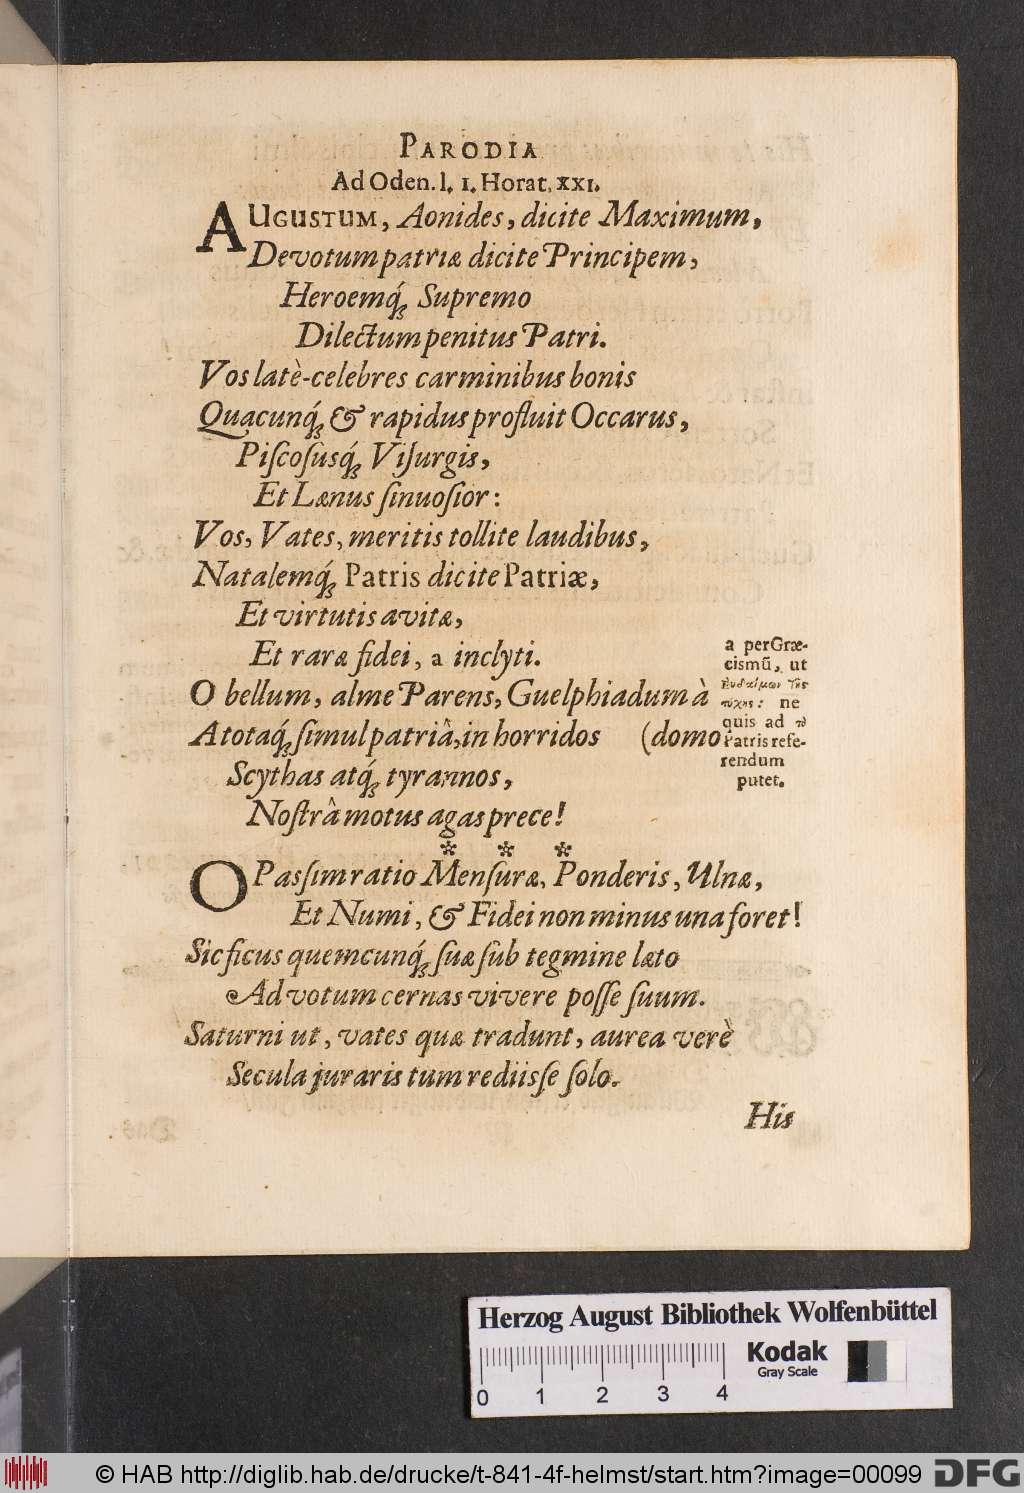 PARODIA
Ad Oden. l. 1. Horat. XXI.
AUGUSTUM, Aonides, dicite Maximum,
Devotum patriæ dicite Principem,
Heroemq́; Supremo
Dilectum penitus Patri.
Vos latè-celebres carminibus bonis
Quacunq́; & rapidus profluit Occarus,
Piſcoſusq́; Viſurgis,
Et Lænus ſinuoſior:
Vos, Vates, meritis tollite laudibus,
Natalemq́; Patris dicite Patriæ,
Et virtutis avitæ,
Et raræ fidei, a inclyti.
O bellum, alme Parens, Guelphiadum à
A totaq́; ſimul patriâ, in horridos (domo
Scythas atq́; tyrannos,
Noſtrâ motus agas prece!
a per Græ-
cismũ, ut
τύχης: ne
quis ad τὸ
Patris refe-
rendum
putet.
* * *
O Paſsim ratio Menſuræ, Ponderis, Ulnæ,
Et Numi, & Fidei non minus una foret!
Sic ficus quemcunq́; ſuæ ſub tegmine læto
Ad votum cernas vivere poſſe ſuum.
Saturni ut, vates quæ tradunt, aurea verè
Secula juraris tum rediiſse ſolo.
His
Herzog August Bibliothek Wolfenbüttel
Kodak
Gray Scale
0 1 2 3 4
© HAB http://diglib.hab.de/drucke/t-841-4f-helmst/start.htm?image=00099
DFG